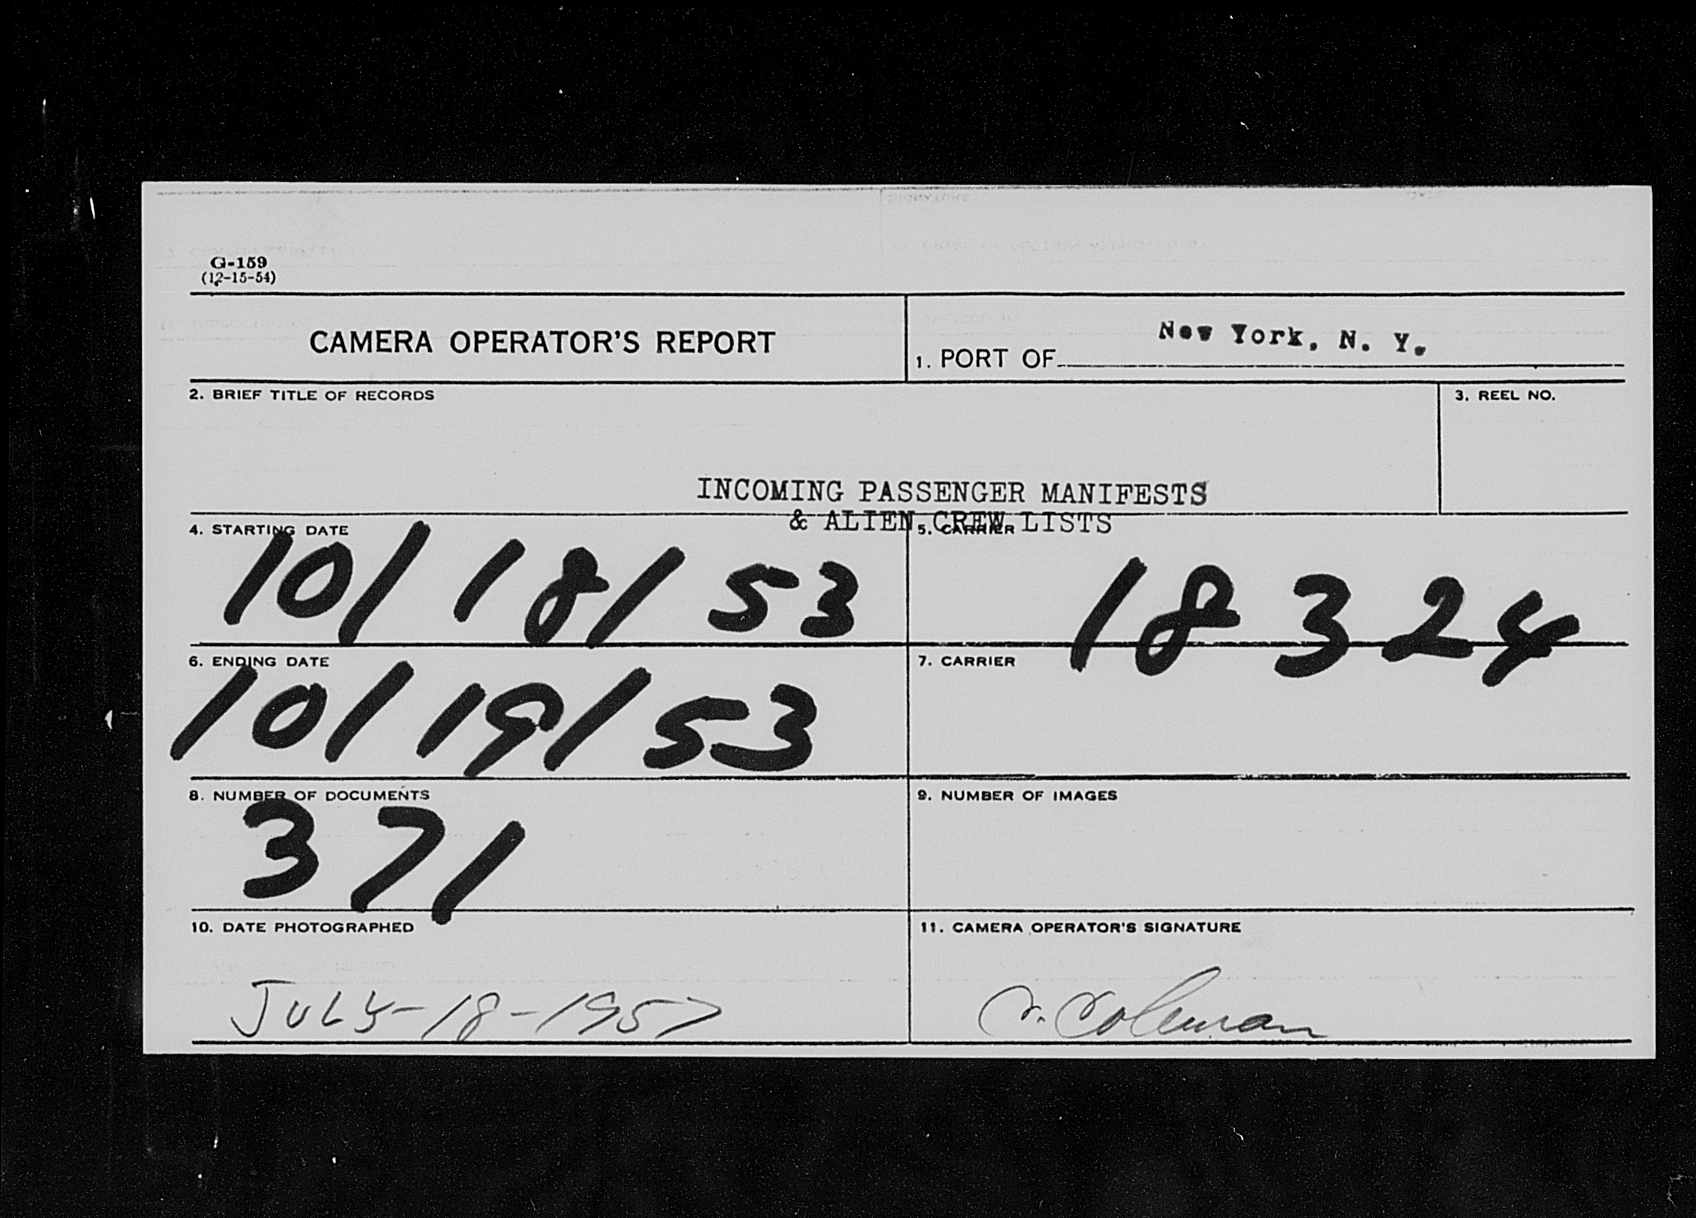 G-159
(12-15-54)
CAMERA OPERATOR'S REPORT
1. PORT OF New York, N. Y.
2. BRIEF TITLE OF RECORDS
3. REEL NO.
INCOMING PASSENGER MANIFESTS
& ALIEN CREW LISTS
4. STARTING DATE
10/18/53
5. CARRIER
18324
6. ENDING DATE
10/19/53
7. CARRIER
8. NUMBER OF DOCUMENTS
371
9. NUMBER OF IMAGES
10. DATE PHOTOGRAPHED
JULY-18-1957
11. CAMERA OPERATOR'S SIGNATURE
Coleman